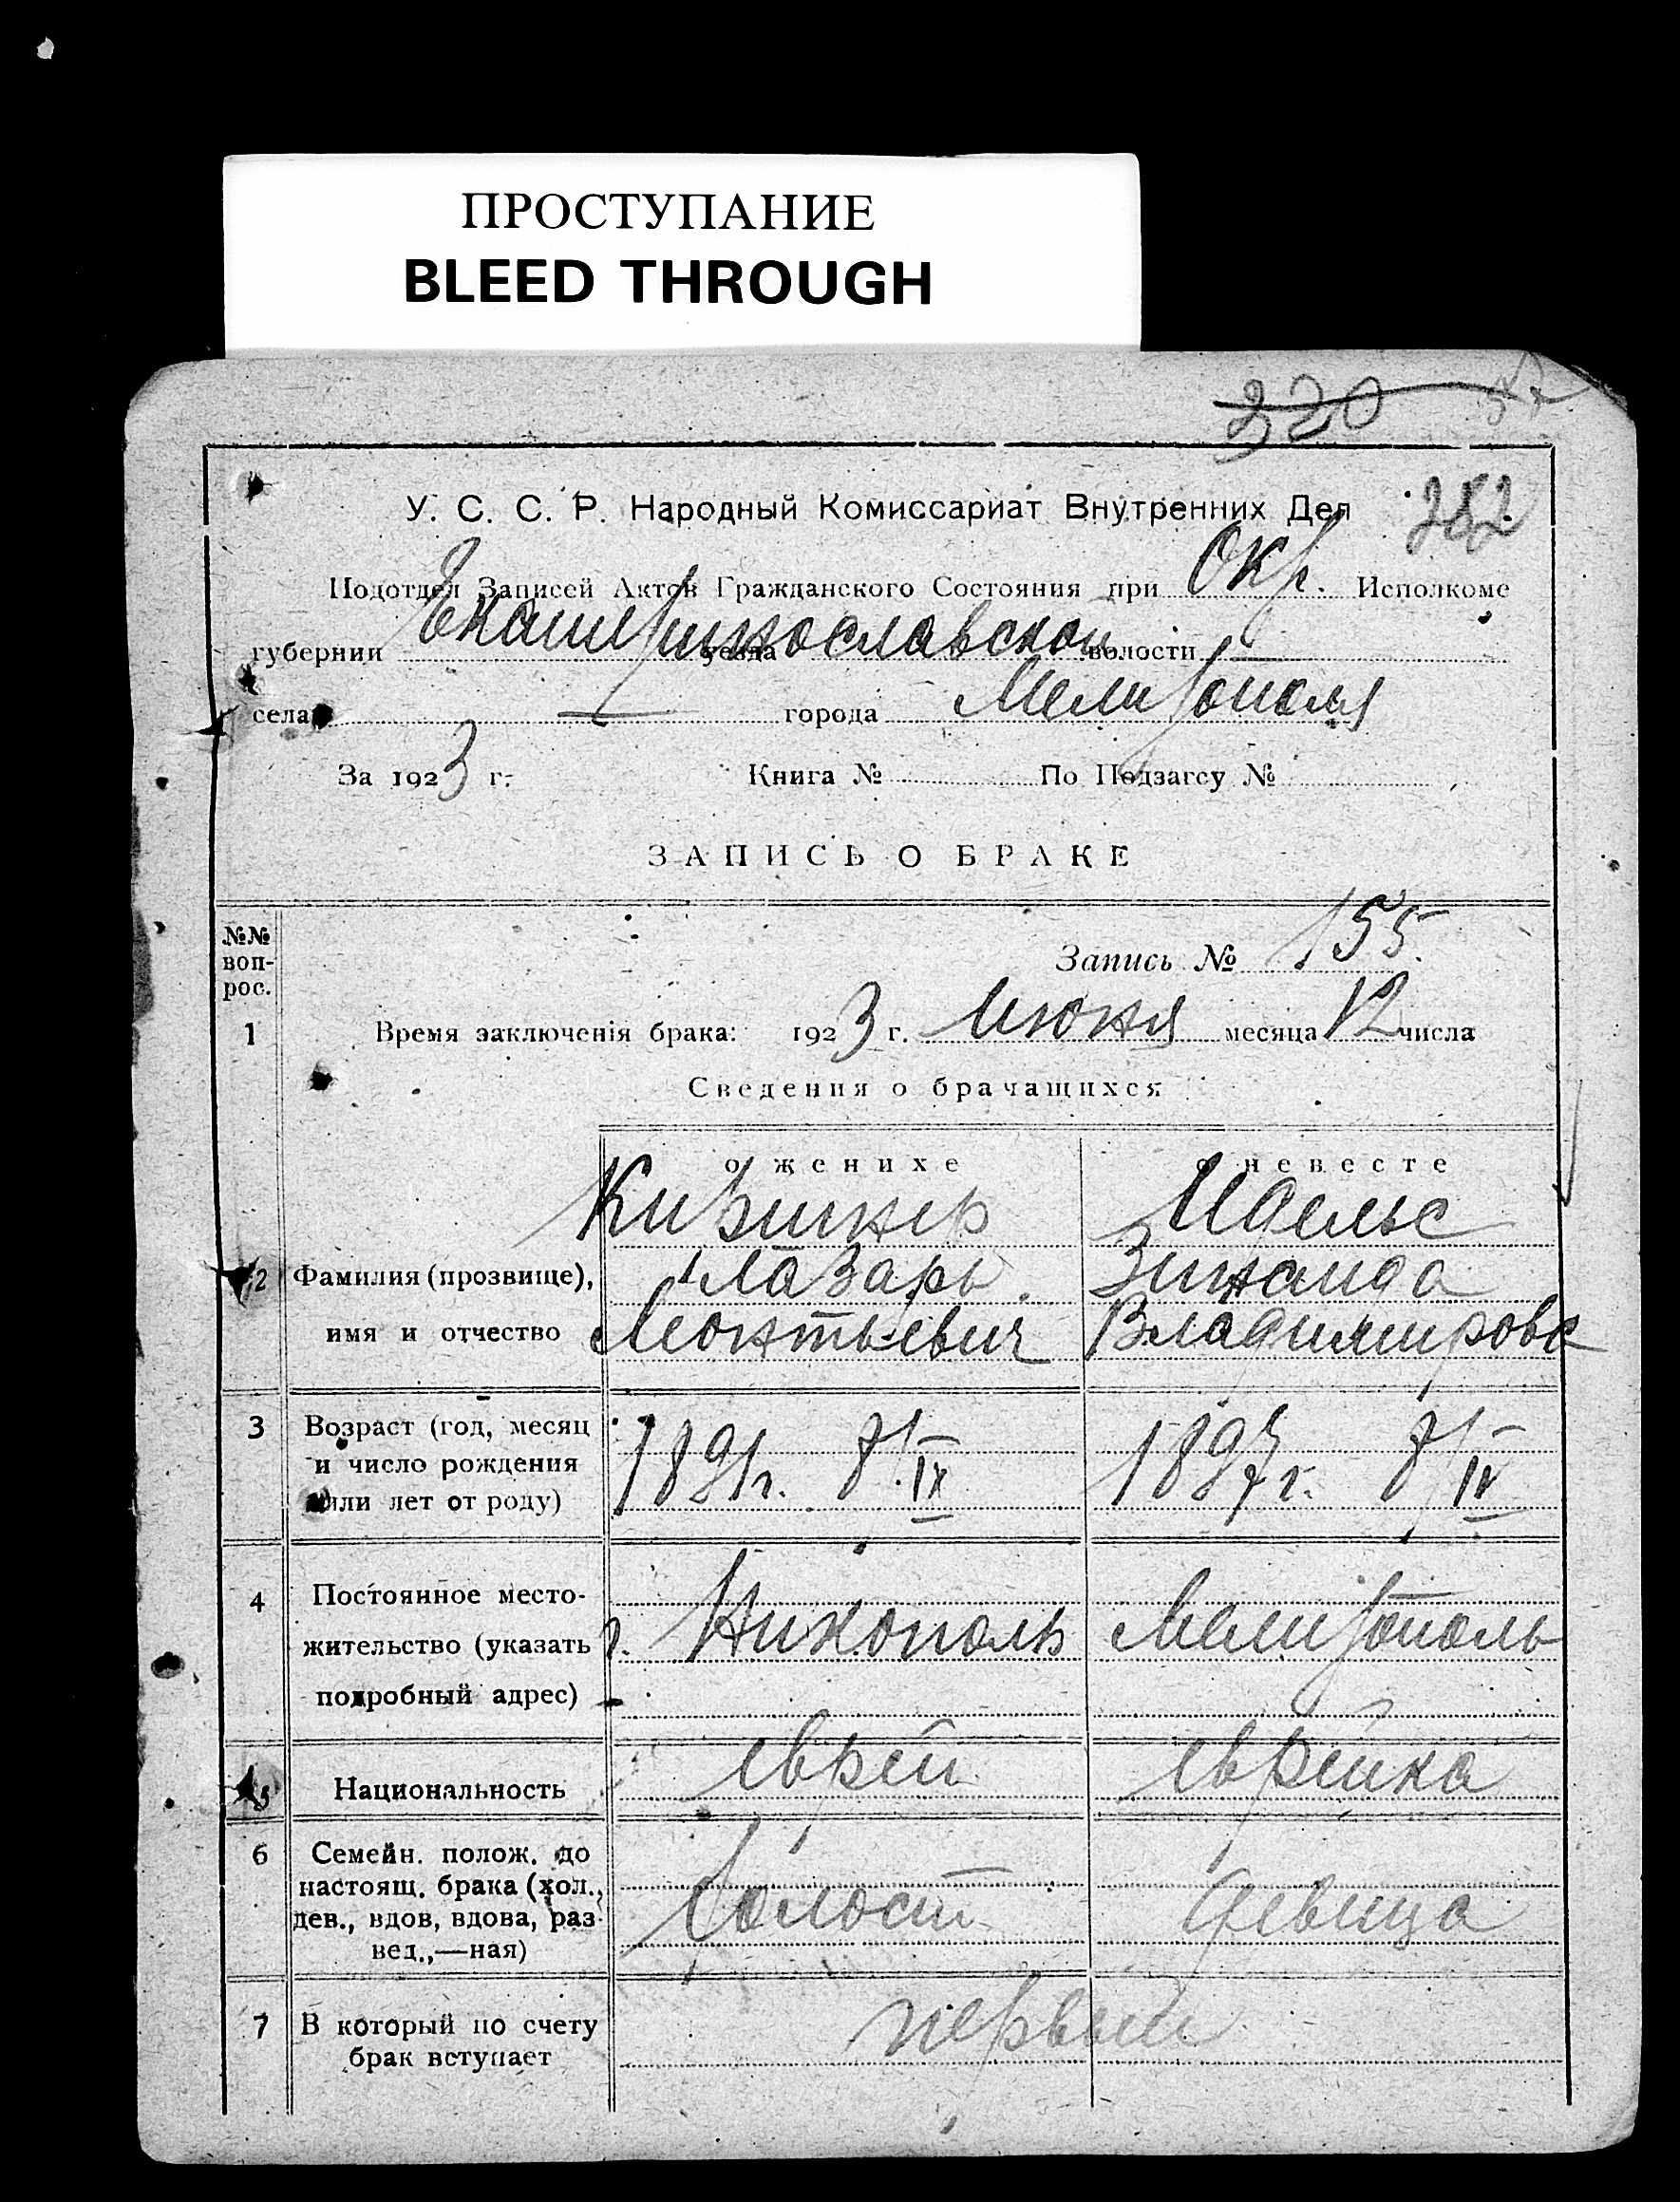 ПРОСТУПАНИЕ
BLEED THROUGH
320
282
У. С. С. Р. Народный Комиссариат Внутренних Дел
Подотдел Записей Актов Гражданского Состояния при Окр. Исполкоме
губернии Екатеринославской уезда волости —
села — города Мелитополя
За 1923 г. Книга № По Подзагсу №
ЗАПИСЬ О БРАКЕ
№№ воп-
рос.
Запись № 155.
1 Время заключенія брака: 1923 г. Июня месяца 12 числа
Сведения о брачащихся
о женихе о невесте
Идельс
2 Фамилия (прозвище), Лазарь Зинаида
имя и отчество Леонтьевич Владимировн
3 Возраст (год, месяц
и число рождения 1891 г. 8/IX 1897 г. 8/IV
или лет от роду)
4 Постоянное место-
жительство (указать г. Никополь Мелитополь
подробный адрес)
5 Национальность еврей еврейка
6 Семейн. полож. до
настоящ. брака (хол.,
дев., вдов, вдова, раз- Холост девица
вед.,—ная)
7 В который по счету первый
брак вступает